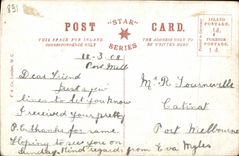 831
POST "STAR" SERIES CARD.
THIS SPACE FOR INLAND CORRESPONDENCE ONLY
THE ADDRESS ONLY TO BE WRITTEN HERE
INLAND POSTAGE ½d
18-3.08
Port Melb
Dear Friend
Just a few
lines to let you know
I received your pretty
P.C. thanks for same.
Hoping to see you on
Sunday. Kind regards from Eva Myles
Mr R Tournevills
Catinat
Port Melbourne